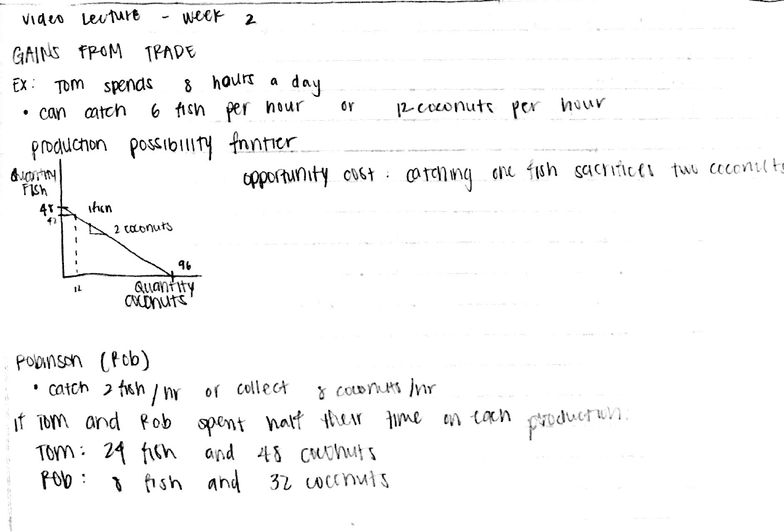 Video Lecture - Week 2
GAINS FROM TRADE
Ex: Tom spends 8 hours a day
• can catch 6 fish per hour or 12 coconuts per hour
production possibility frontier
opportunity cost: catching one fish sacrifices two coconuts
Quantity
Fish
48
42
1 fish
2 coconuts
96
12
Quantity
coconuts
Robinson (Rob)
• catch 2 fish/hr or collect 8 coconuts/hr
if Tom and Rob spent half their time on each production:
Tom: 24 fish and 48 coconuts
Rob: 8 fish and 32 coconuts